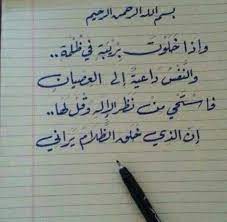 بسم الله الرحمن الرحيم
وإذا خلوت بريبة في ظلمة ..
والنفس داعية إلى العصيان
فاستحي من نظر الإله وقل لها ..
إن الذي خلق الظلام يراني